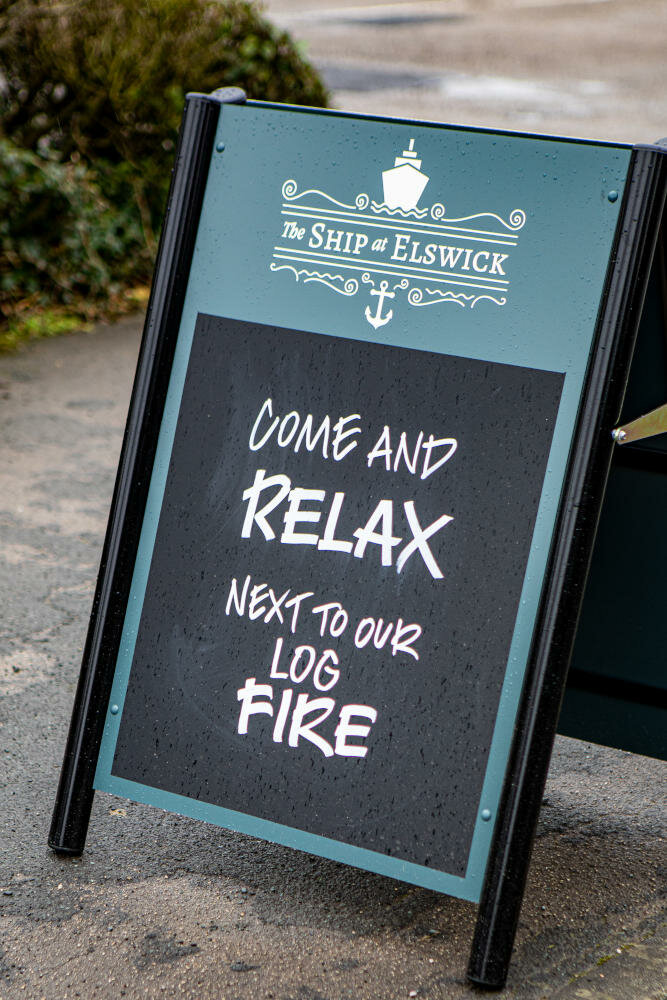 The SHIP at ELSWICK
COME AND
RELAX
NEXT TO OUR
LOG
FIRE